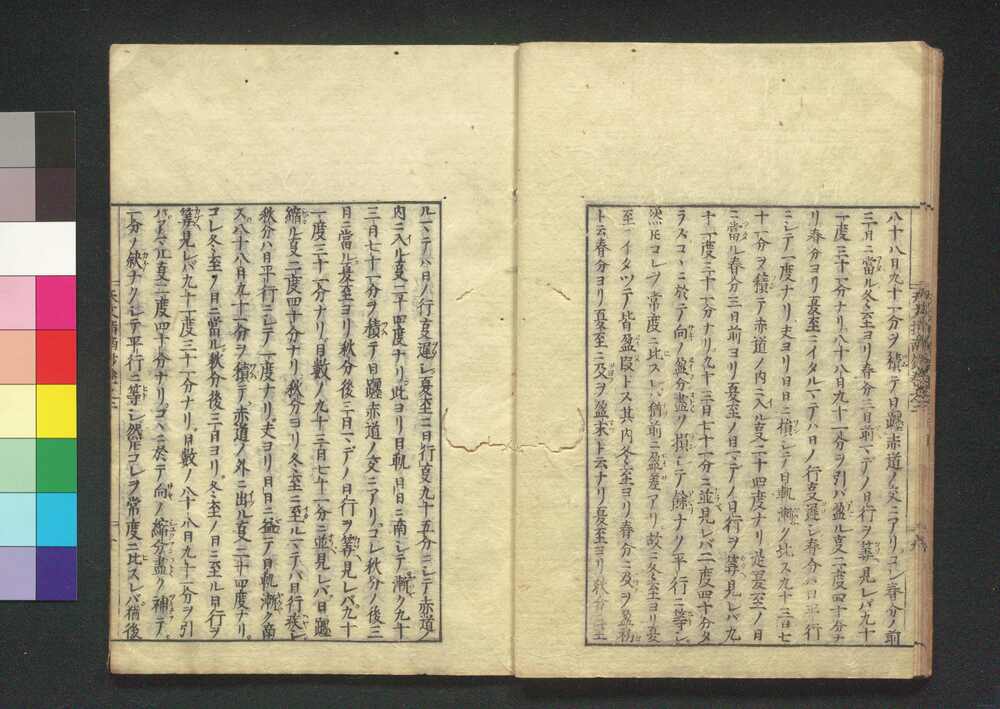 八十八日九十一分ヲ積テ日躔赤道ノ交ニアリコレ春分ノ前
三日ニ當ル冬至ヨリ春分三日前マデノ日行ヲ筭見レバ九十
一度三十一分ナリ八十八日九十一分ヲ引バ盈ル夏二度四十分ナ
リ春分ヨリ夏至ニイタルマデハ日ノ行夏遲シ春分ハ日平行
ニシテ一度ナリ夫ヨリ日日ニ損シ日軌漸ク北ス九十三日七
十一分ヲ積テ赤道ノ内ニ入ル夏二十四度ナリ是夏至ノ日
ニ當ル春分三日前ヨリ夏至ノ日マデノ日行ヲ筭見レバ九
十一度三十一分ナリ九十三日七十一分ニ並見レバ二度四十分タ
ラズコヽニ於テ向ノ盈分盡ク損シテ餘ナク平行ニ等シ
然ルコレヲ常度ニ比スレバ猶前ニ盈差アリ故ニ冬至ヨリ夏
至ニイタツテ皆盈段トス其内冬至ヨリ春分ニ及ヲ盈初
ト云春分ヨリ夏至ニ及ヲ盈末ト云ナリ夏至ヨリ秋分ニ至
ルマデハ日ノ行夏遲シ夏至ニ日行夏九十五分ニシテ赤道ノ
内ニ入ル夏二十四度ナリ此ヨリ日軌日日ニ南シテ漸ク九十
三日七十一分ヲ積テ日躔赤道ノ交ニアリコレ秋分ノ後三
日ニ當ル夏至ヨリ秋分後三日マデノ日行ヲ筭見レバ九十
一度三十一分ナリ日數ノ九十三日七十一分ニ並見レバ日躔
縮ル夏二度四十分ナリ秋分ヨリ冬至ニ至ルマデハ日行疾シ
秋分ハ日平行ニシテ一度ナリ夫ヨリ日日ニ益テ日軌漸ク南
ス八十八日九十一分ヲ積テ赤道ノ外ニ出ル夏二十四度ナリ
コレ冬至ノ日ニ當ル秋分後三日ヨリ冬至ノ日ニ至ル日行ヲ
筭見レバ九十一度三十一分ナリ日數ノ八十八日九十一分ヲ引
バアマル夏二度四十分ナリコヽニ於テ向ノ縮分盡ク補テ
一分ノ缺ナクシテ平行ニ等シ然ルコレヲ常度ニ比スレバ猶後